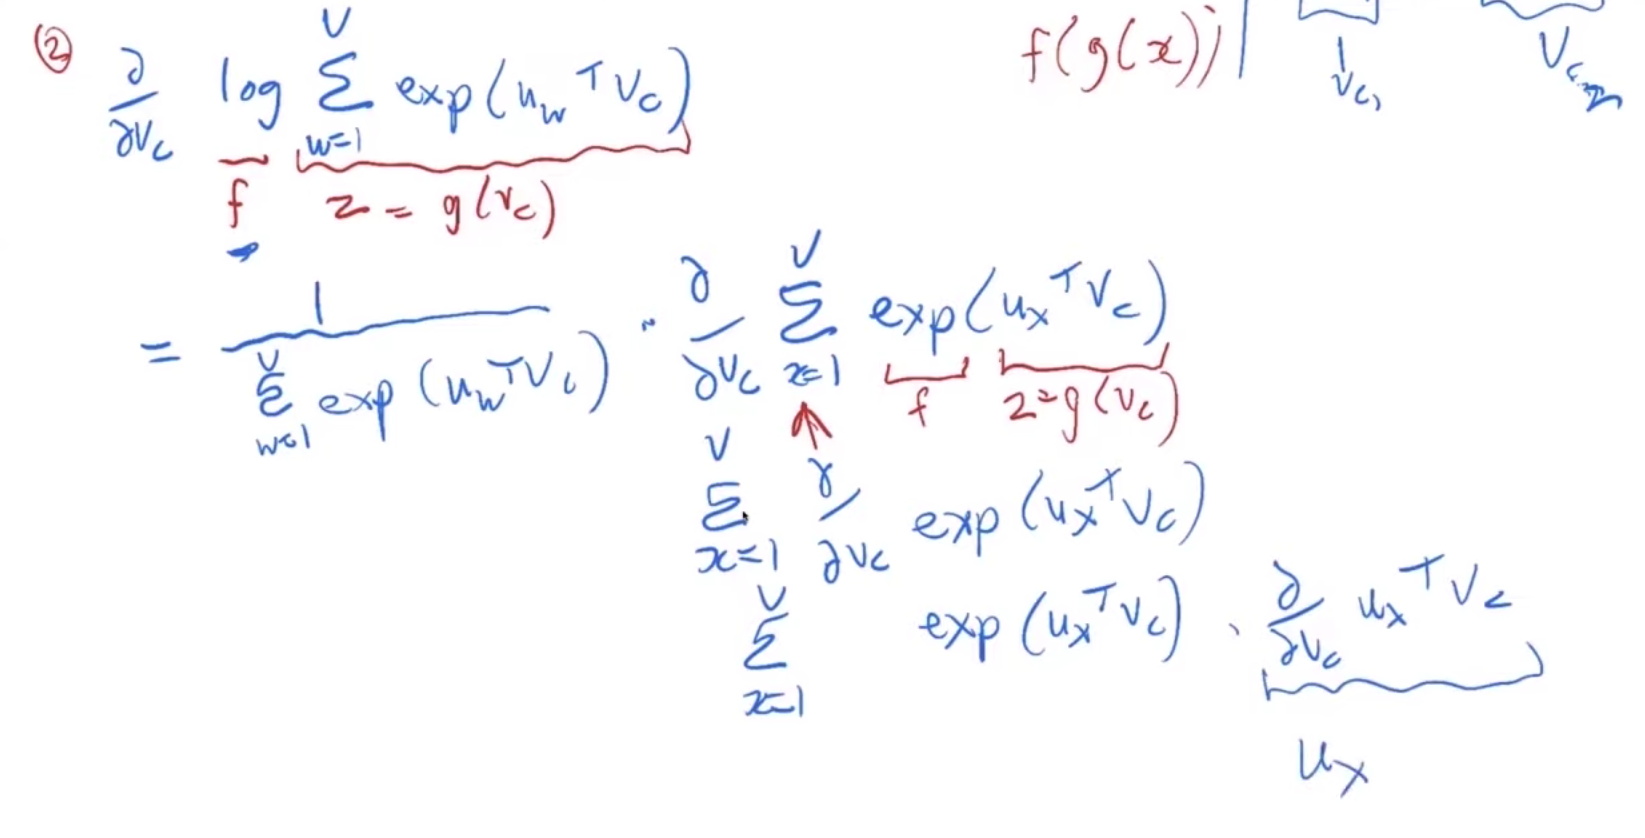 ② ∂/∂v_c log Σ_{w=1}^{V} exp(u_w^T v_c)
f z = g(v_c)
f(g(x))
v_{c1} v_{c2}
= 1 / Σ_{w=1}^{V} exp(u_w^T v_c) · ∂/∂v_c Σ_{x=1}^{V} exp(u_x^T v_c)
f z=g(v_c)
Σ_{x=1}^{V} ∂/∂v_c exp(u_x^T v_c)
Σ_{x=1}^{V} exp(u_x^T v_c) · ∂/∂v_c u_x^T v_c
u_x